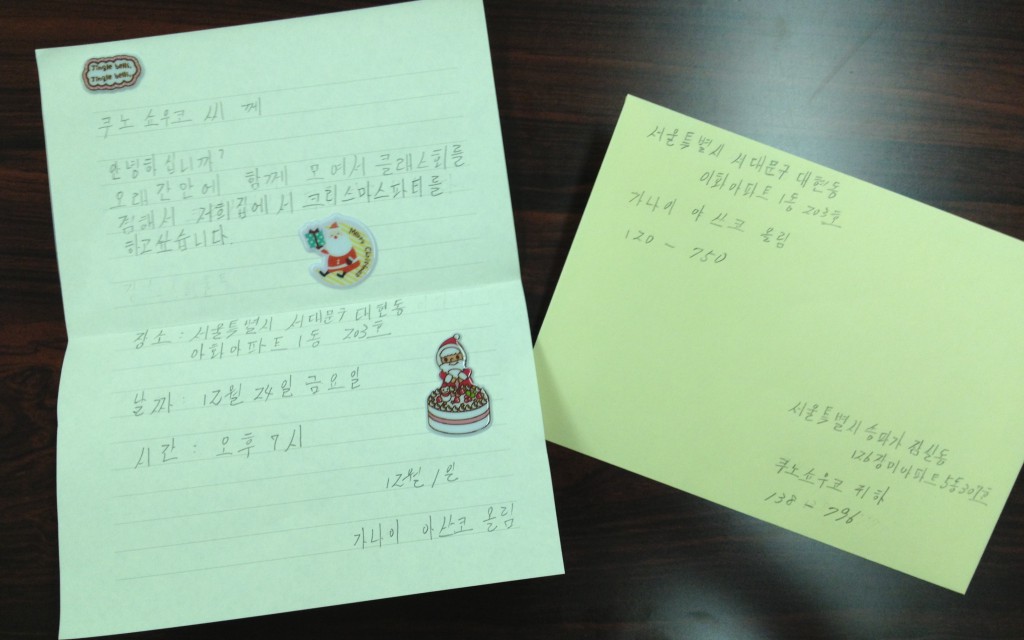 Jingle bells,
Jingle bells,
쿠노 쇼우코 씨 께
안녕하십니까?
오래간만에 함께 모여서 클래스회를
겸해서 저희집에서 크리스마스파티를
하고싶습니다.
Merry Christmas
장소 : 서울특별시 서대문구 대현동
이화아파트 1동 203호
날짜 : 12월 24일 금요일
시간 : 오후 7시
12월 1일
가나이 아산코 올림
서울특별시 서대문구 대현동
이화아파트 1동 203호
가나이 아산코 올림
120 - 750
서울특별시 송파구 잠실동
126장미아파트 5동309호
쿠노쇼우코 귀하
138 - 796